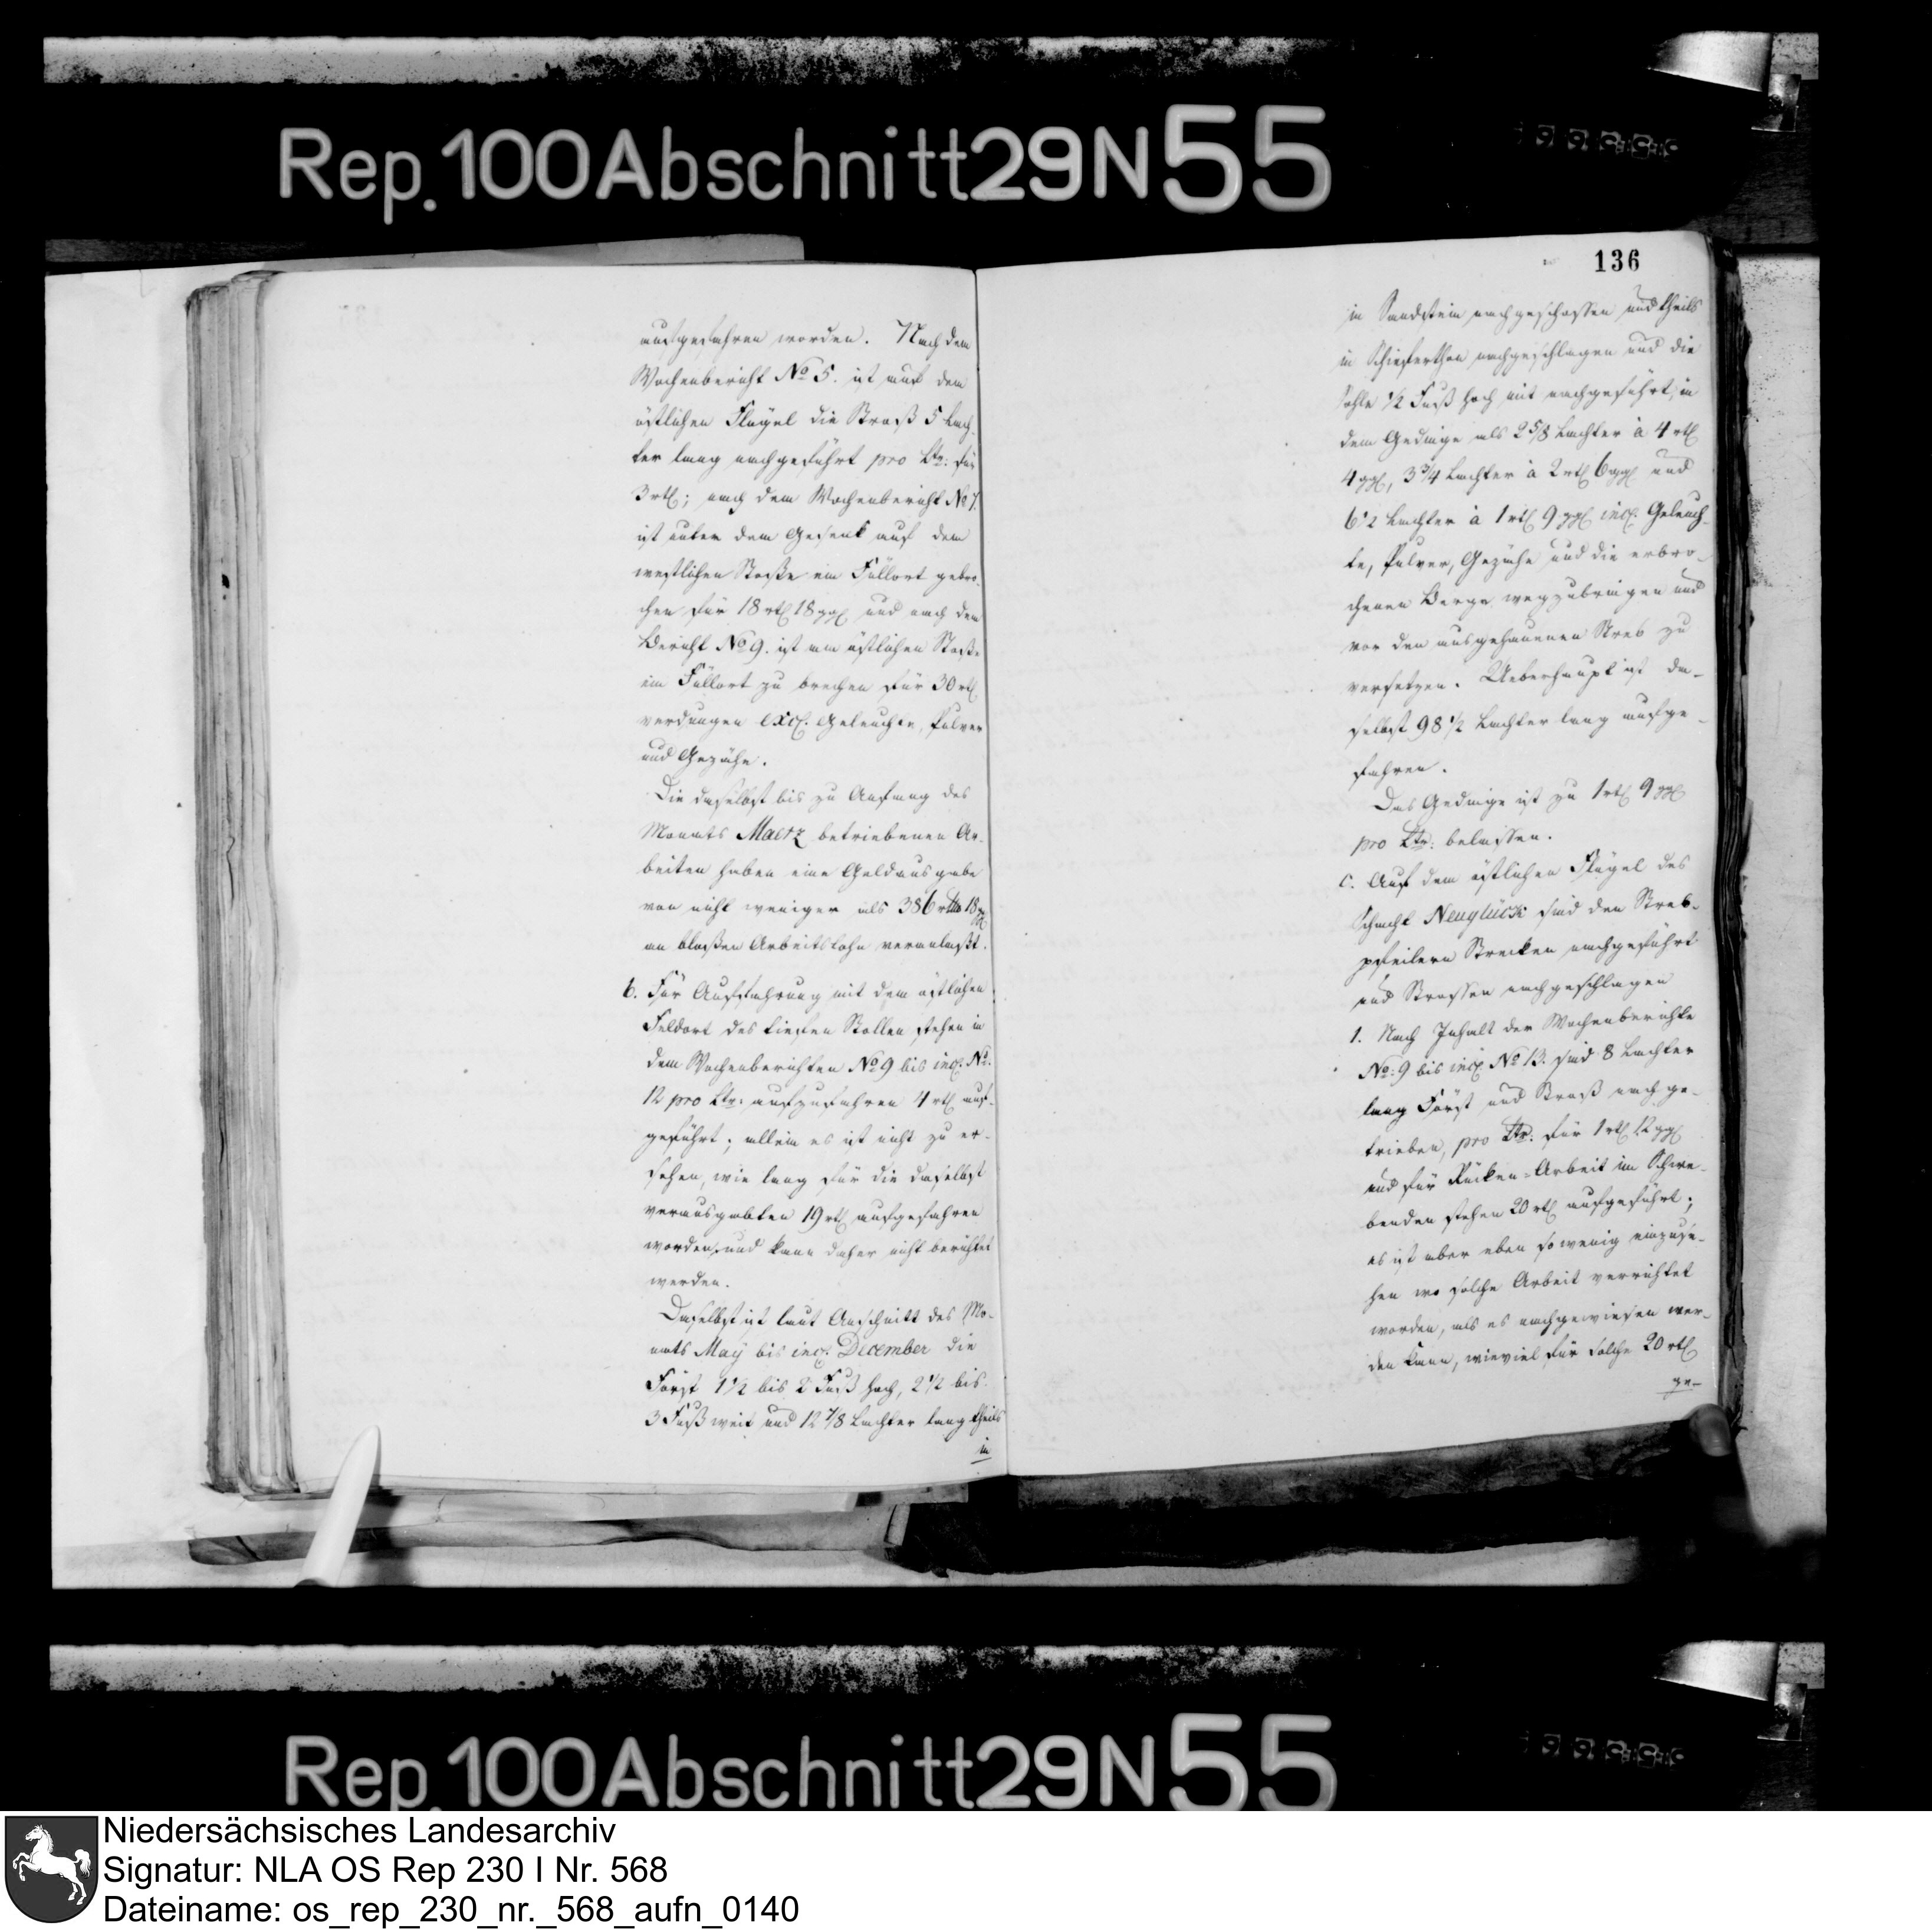 Rep. 100 Abschnitt 29 N 55
aufgefahren worden. Nach dem
Wochenbericht No 5. ist auf dem
östlichen Flügel die Stroß 5 Lach-
ter lang nachgeführt pro Ltr: für
3 rtl; nach dem Wochenbericht No 7.
ist unter dem Gesenk auf dem
westlichen Stoße ein Füllort gebro-
chen für 18 rtl 18 ggl und nach dem
Bericht No 9. ist am östlichen Stoße
ein Füllort zu brechen für 30 rtl
verdungen excl. Geleuchte, Pulver
und Gezähe.
Die daselbst bis zu Anfang des
Monats Maerz betriebenen Ar-
beiten haben eine Geldausgabe
von nicht weniger als 386 rtl 18 ggl
an bloßen Arbeitslohn veranlaßt.
b. Für Auffahrung mit dem östlichen
Feldort des tiefen Stollen stehen in
dem Wochenberichten No 9 bis incl. No:
12 pro Ltr: aufzufahren 4 rtl auf-
geführt; allein es ist nicht zu er-
sehen, wie lang für die daselbst
verausgabten 19 rtl aufgefahren
worden, und kann daher nicht berichtet
werden.
Daselbst ist laut Anschnitt des Mo-
nats May bis incl. December die
Först 1 1/2 bis 2 Fuß hoch, 2 1/2 bis
3 Fuß weit und 12 7/8 Lachter lang theils
in
136
in Sandstein nachgeschossen und theils
in Schieferthon nachgeschlagen und die
Sohle 1/2 Fuß hoch mit nachgeführt, in
dem Gedinge als 2 5/8 Lachter à 4 rtl
4 ggl, 3 3/4 Lachter à 2 rtl 6 ggl und
6 1/2 Lachter à 1 rtl 9 ggl incl. Geleuch-
te, Pulver, Gezähe und die erbro-
chenen Berge wegzubringen und
vor den ausgehauenen Streb zu
versetzen. Ueberhaupt ist da-
selbst 98 1/2 Lachter lang aufge-
fahren.
Das Gedinge ist zu 1 rtl 9 ggl
pro Ltr: belassen.
c. Auf dem östlichen Flügel des
Schacht Neuglück sind den Streb-
pfeilern Strecken nachgeführt
und Strossen nachgeschlagen
1. Nach Inhalt der Wochenberichte
No: 9 bis incl No 13. sind 8 Lachter
lang Först und Stroß nachge-
trieben, pro Ltr: für 1 rtl 12 ggl
und für Rücken=Arbeit im Schwe-
benden stehen 20 rtl aufgeführt;
es ist aber eben so wenig einzuse-
hen wo solche Arbeit verrichtet
worden, als es nachgewiesen wer-
den kann, wieviel für solche 20 rtl
ge-
Rep. 100 Abschnitt 29 N 55
Niedersächsisches Landesarchiv
Signatur: NLA OS Rep 230 I Nr. 568
Dateiname: os_rep_230_nr._568_aufn_0140